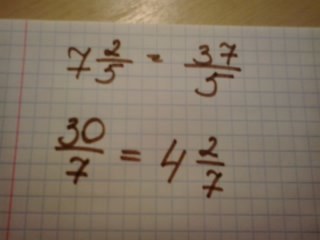 7 2/5 = 37/5
30/7 = 4 2/7